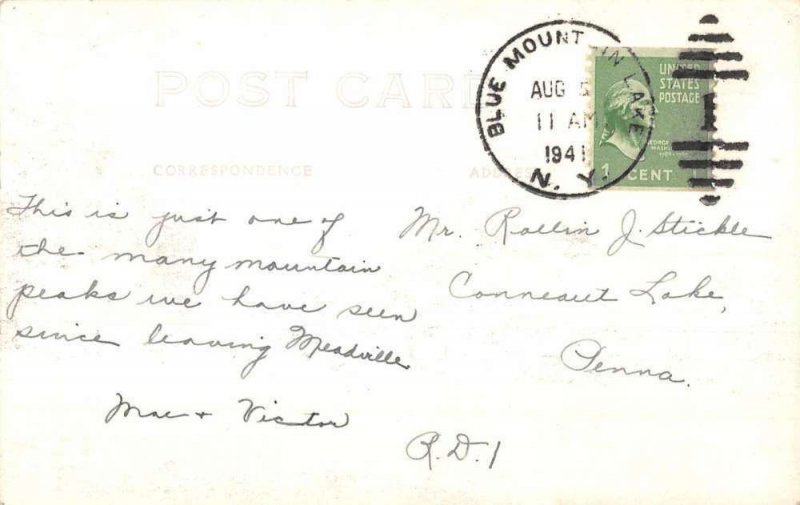 POST CARD
BLUE MOUNTAIN LAKE
AUG 5
11 AM
1941
N. Y.
UNITED
STATES
POSTAGE
GEORGE
1 CENT
CORRESPONDENCE
ADDRESS
This is just one of
the many mountain
peaks we have seen
since leaving Meadville
Mae + Victor
Mr. Rollin J. Stickle
Conneaut Lake,
Penna.
R.D.1